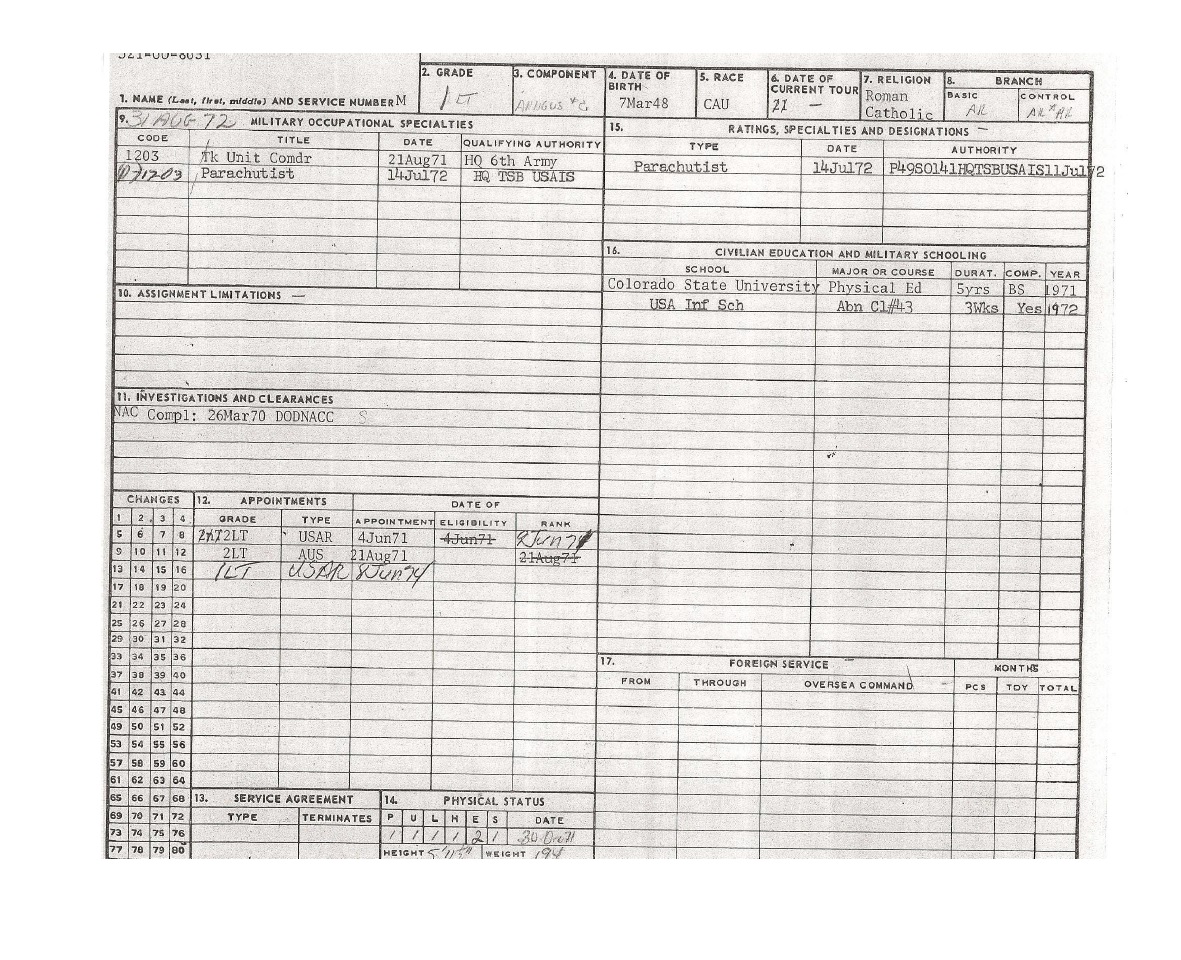 2. GRADE 3. COMPONENT 4. DATE OF BIRTH 5. RACE 6. DATE OF CURRENT TOUR 7. RELIGION 8. BRANCH
BASIC CONTROL
1. NAME (Last, first, middle) AND SERVICE NUMBER M
1LT 7Mar48 CAU 21 — Roman Catholic AR
9. 31 AUG 72 MILITARY OCCUPATIONAL SPECIALTIES
CODE TITLE DATE QUALIFYING AUTHORITY
1203 Tk Unit Comdr 21Aug71 HQ 6th Army
71203 Parachutist 14Jul72 HQ TSB USAIS
15. RATINGS, SPECIALTIES AND DESIGNATIONS —
TYPE DATE AUTHORITY
Parachutist 14Jul72 P49SO141HQTSBUSAIS11Jul72
10. ASSIGNMENT LIMITATIONS —
16. CIVILIAN EDUCATION AND MILITARY SCHOOLING
SCHOOL MAJOR OR COURSE DURAT. COMP. YEAR
Colorado State University Physical Ed 5yrs BS 1971
USA Inf Sch Abn Cl#43 3Wks Yes 1972
11. INVESTIGATIONS AND CLEARANCES
NAC Compl: 26Mar70 DODNACC S
CHANGES 12. APPOINTMENTS DATE OF
GRADE TYPE APPOINTMENT ELIGIBILITY RANK
1 2 3 4
5 6 7 8 2LT USAR 4Jun71 4Jun71 8Jun71
9 10 11 12 2LT AUS 21Aug71 21Aug71
13 14 15 16 1LT USAR 8Jun74
17 18 19 20
21 22 23 24
25 26 27 28
29 30 31 32
33 34 35 36
37 38 39 40
41 42 43 44
45 46 47 48
49 50 51 52
53 54 55 56
57 58 59 60
61 62 63 64
65 66 67 68
69 70 71 72
73 74 75 76
77 78 79 80
17. FOREIGN SERVICE MONTHS
FROM THROUGH OVERSEA COMMAND PCS TDY TOTAL
13. SERVICE AGREEMENT
TYPE TERMINATES
14. PHYSICAL STATUS
P U L H E S DATE
1 1 1 1 2 1
HEIGHT WEIGHT 194